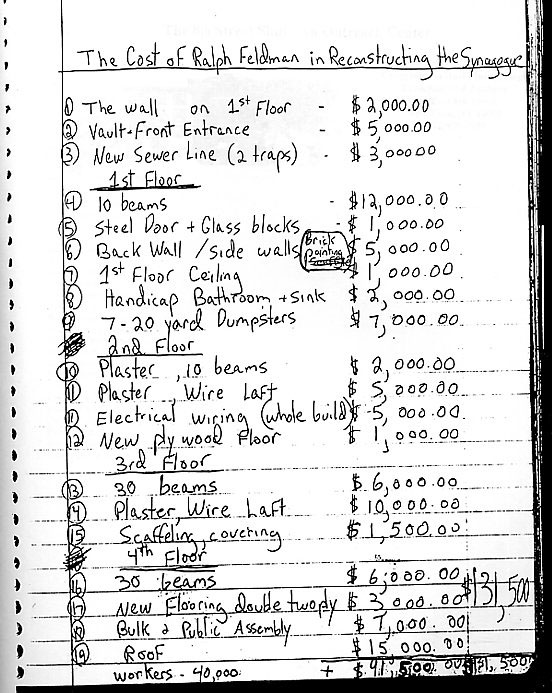 The Cost of Ralph Feldman in Reconstructing the Synagogue
① The wall on 1st Floor - $2,000.00
② Vault-Front Entrance - $5,000.00
③ New Sewer Line (2 traps) - $3,000.00
1st Floor
④ 10 beams - $12,000.00
⑤ Steel Door + Glass blocks - $1,000.00
⑥ Back Wall / side walls Brick Painting $5,000.00
⑦ 1st Floor Ceiling $1,000.00
⑧ Handicap Bathroom + sink $2,000.00
⑨ 7-20 yard Dumpsters $7,000.00
2nd Floor
⑩ Plaster, 10 beams $2,000.00
⑪ Plaster, Wire Laft $5,000.00
⑪ Electrical wiring (whole build) $5,000.00
⑫ New plywood Floor $1,000.00
3rd Floor
⑬ 30 beams $6,000.00
⑭ Plaster, Wire Laft $10,000.00
⑮ Scaffeling, covering $1,500.00
4th Floor
⑯ 30 beams $6,000.00
⑰ New Flooring double twoply $3,000.00
⑱ Bulk & Public Assembly $7,000.00
⑲ Roof $15,000.00
$131,500
workers - 40,000 + $91,500.00